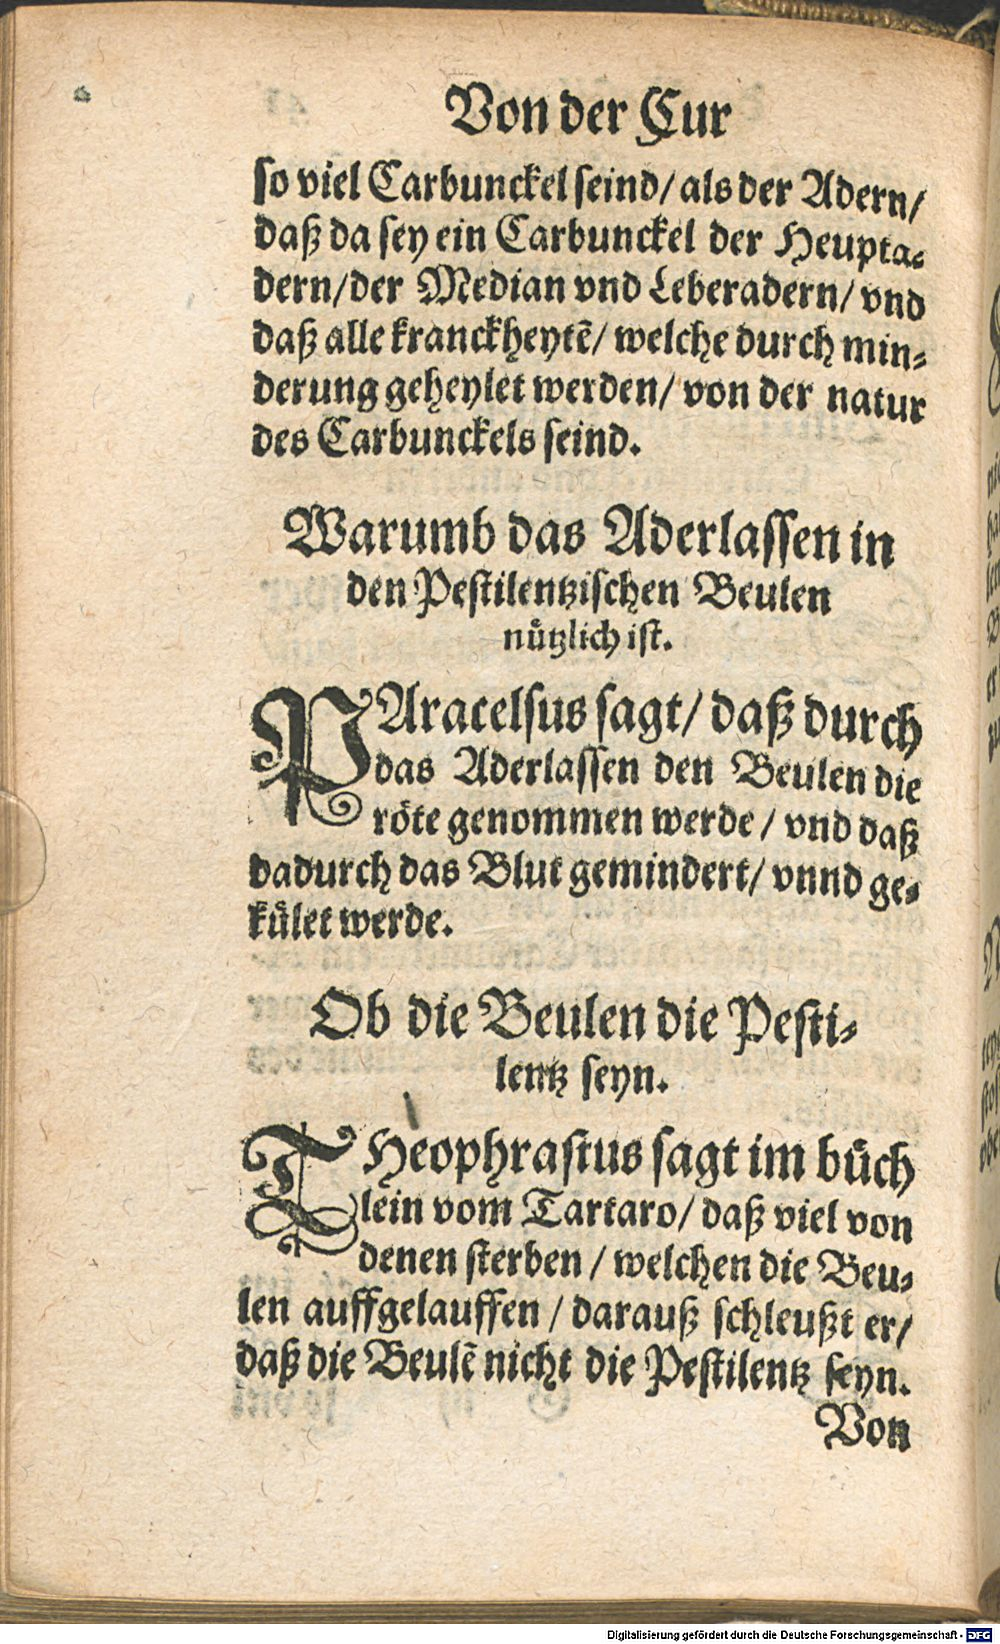 Von der Cur
so viel Carbunckel seind/ als der Adern/
daß da sey ein Carbunckel der Heupta⸗
dern/der Median vnd Leberadern/ vnd
daß alle kranckheytẽ/ welche durch min⸗
derung geheylet werden/ von der natur
des Carbunckels seind.
Warumb das Aderlassen in
den Pestilentzischen Beulen
nuͤtzlich ist.
PAracelsus sagt/ daß durch
das Aderlassen den Beulen die
roͤte genommen werde / vnd daß
dadurch das Blut gemindert/ vnnd ge⸗
kuͤlet werde.
Ob die Beulen die Pesti⸗
lentz seyn.
THeophrastus sagt im buͤch
lein vom Tartaro/ daß viel von
denen sterben / welchen die Beu⸗
len auffgelauffen / darauß schleußt er/
daß die Beulẽ nicht die Pestilentz seyn.
Von
Digitalisierung gefördert durch die Deutsche Forschungsgemeinschaft - DFG